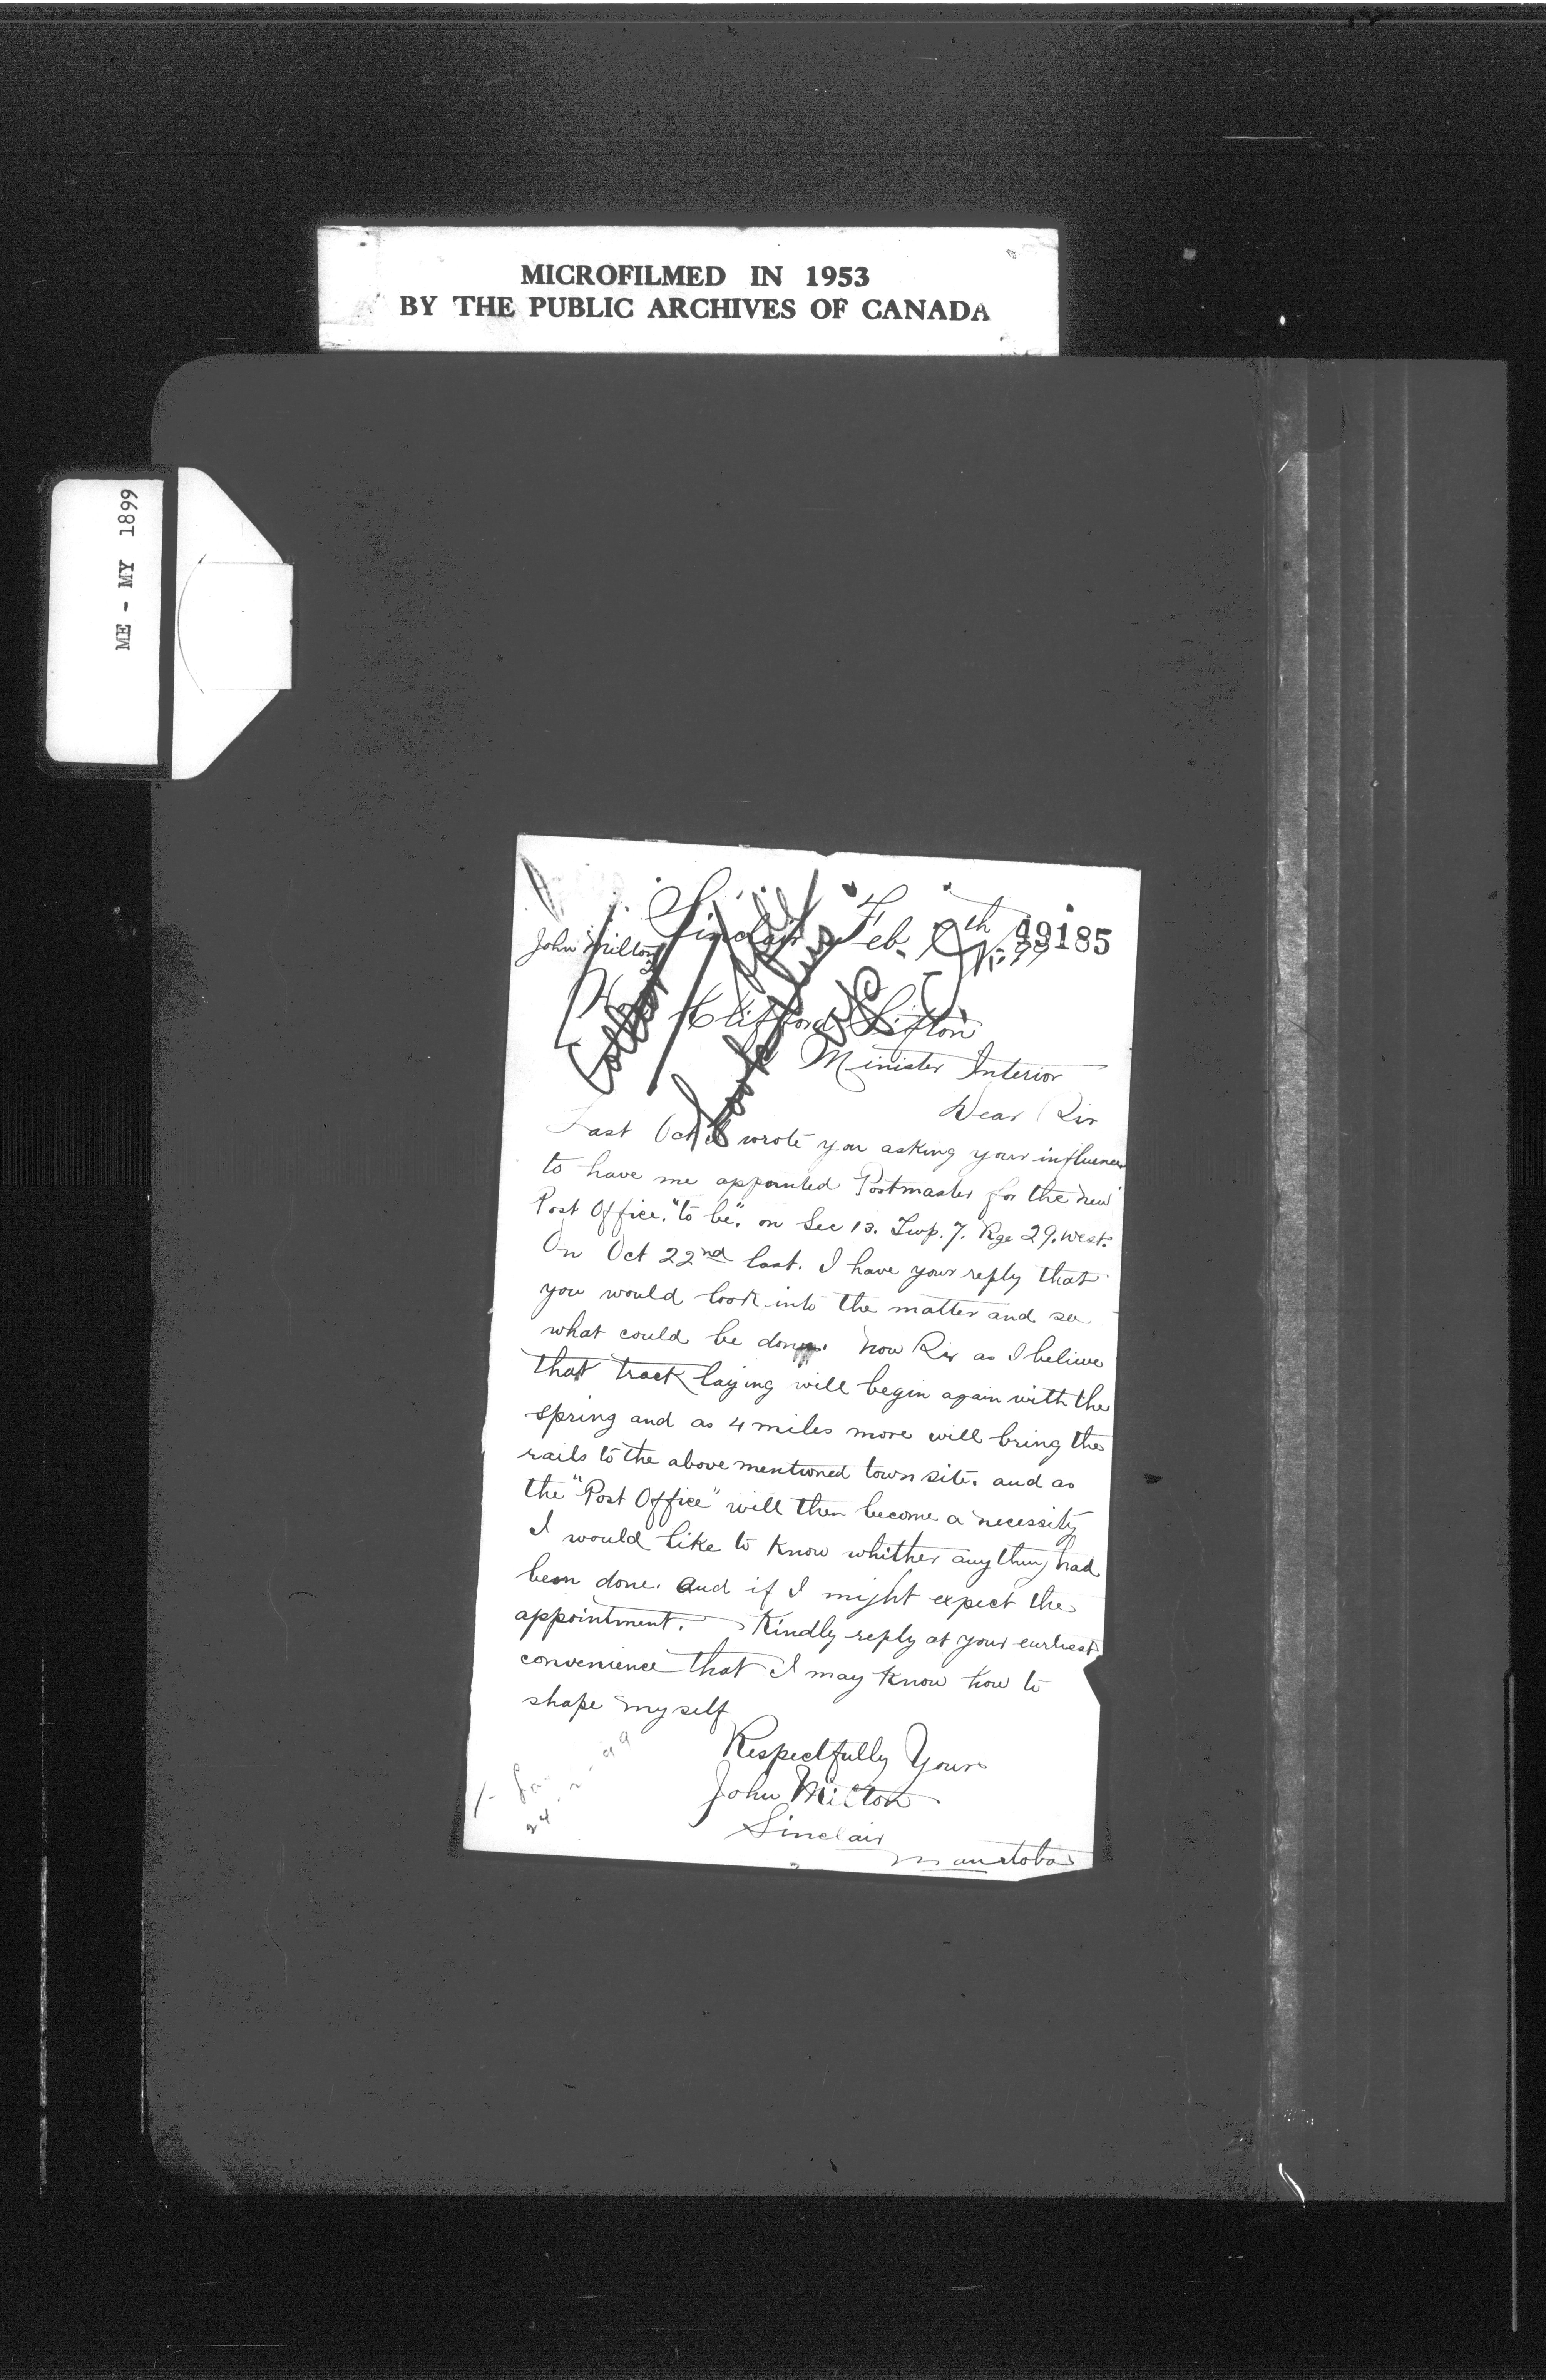 MICROFILMED IN 1953
BY THE PUBLIC ARCHIVES OF CANADA
ME - MY 1899
Sinclair Feb. th
49185
John Milton
Clifford Sifton
Minister Interior
Dear Sir
Last Oct I wrote you asking your influence
to have me appointed Postmaster for the new
Post Office. "to be". on Sec 13. Twp. 7. Rge 29. West.
On Oct 22nd last. I have your reply that
you would look into the matter and see
what could be done. Now Sir as I believe
that track laying will begin again with the
spring and as 4 miles more will bring the
rails to the above mentioned town site. and as
the "Post Office" will then become a necessity
I would like to know whither anything had
been done. And if I might expect the
appointment. Kindly reply at your earliest
convenience that I may know how to
shape myself
Respectfully Yours
John Milton
Sinclair
Manitoba